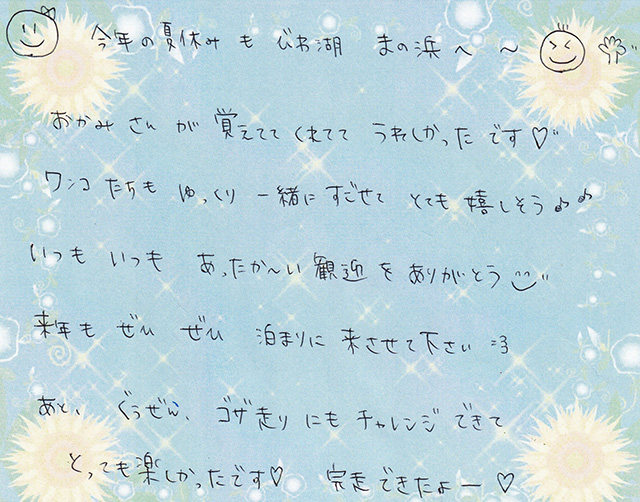 今年の夏休みも びわ湖 まの浜へ ～
おかみさんが覚えててくれてて うれしかったです♡
ワンコたちも ゆっくり 一緒に すごせて とても 嬉しそう♪♪
いつも いつも あったか～い 歓迎を ありがとう
来年も ぜひ ぜひ 泊まりに 来させて下さい :3
あと、 ぐうぜん、 ゴザ走りにも チャレンジ できて
とっても楽しかったです♡ 完走できたよー♡